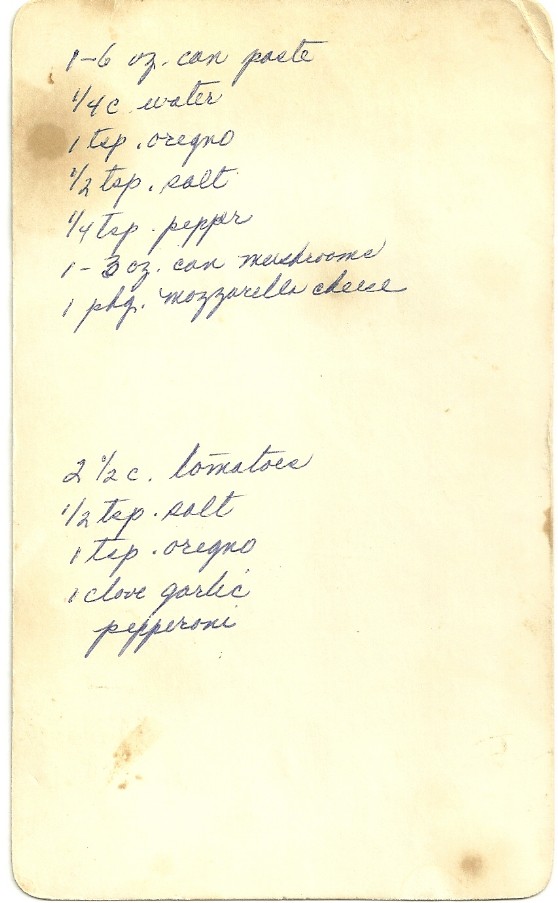 1-6 oz. can paste
1/4 c water
1 tsp. oregno
1/2 tsp. salt
1/4 tsp. pepper
1-3 oz. can mushrooms
1 pkg. mozzarella cheese
2 1/2 c. tomatoes
1/2 tsp. salt
1 tsp. oregno
1 clove garlic
pepperoni